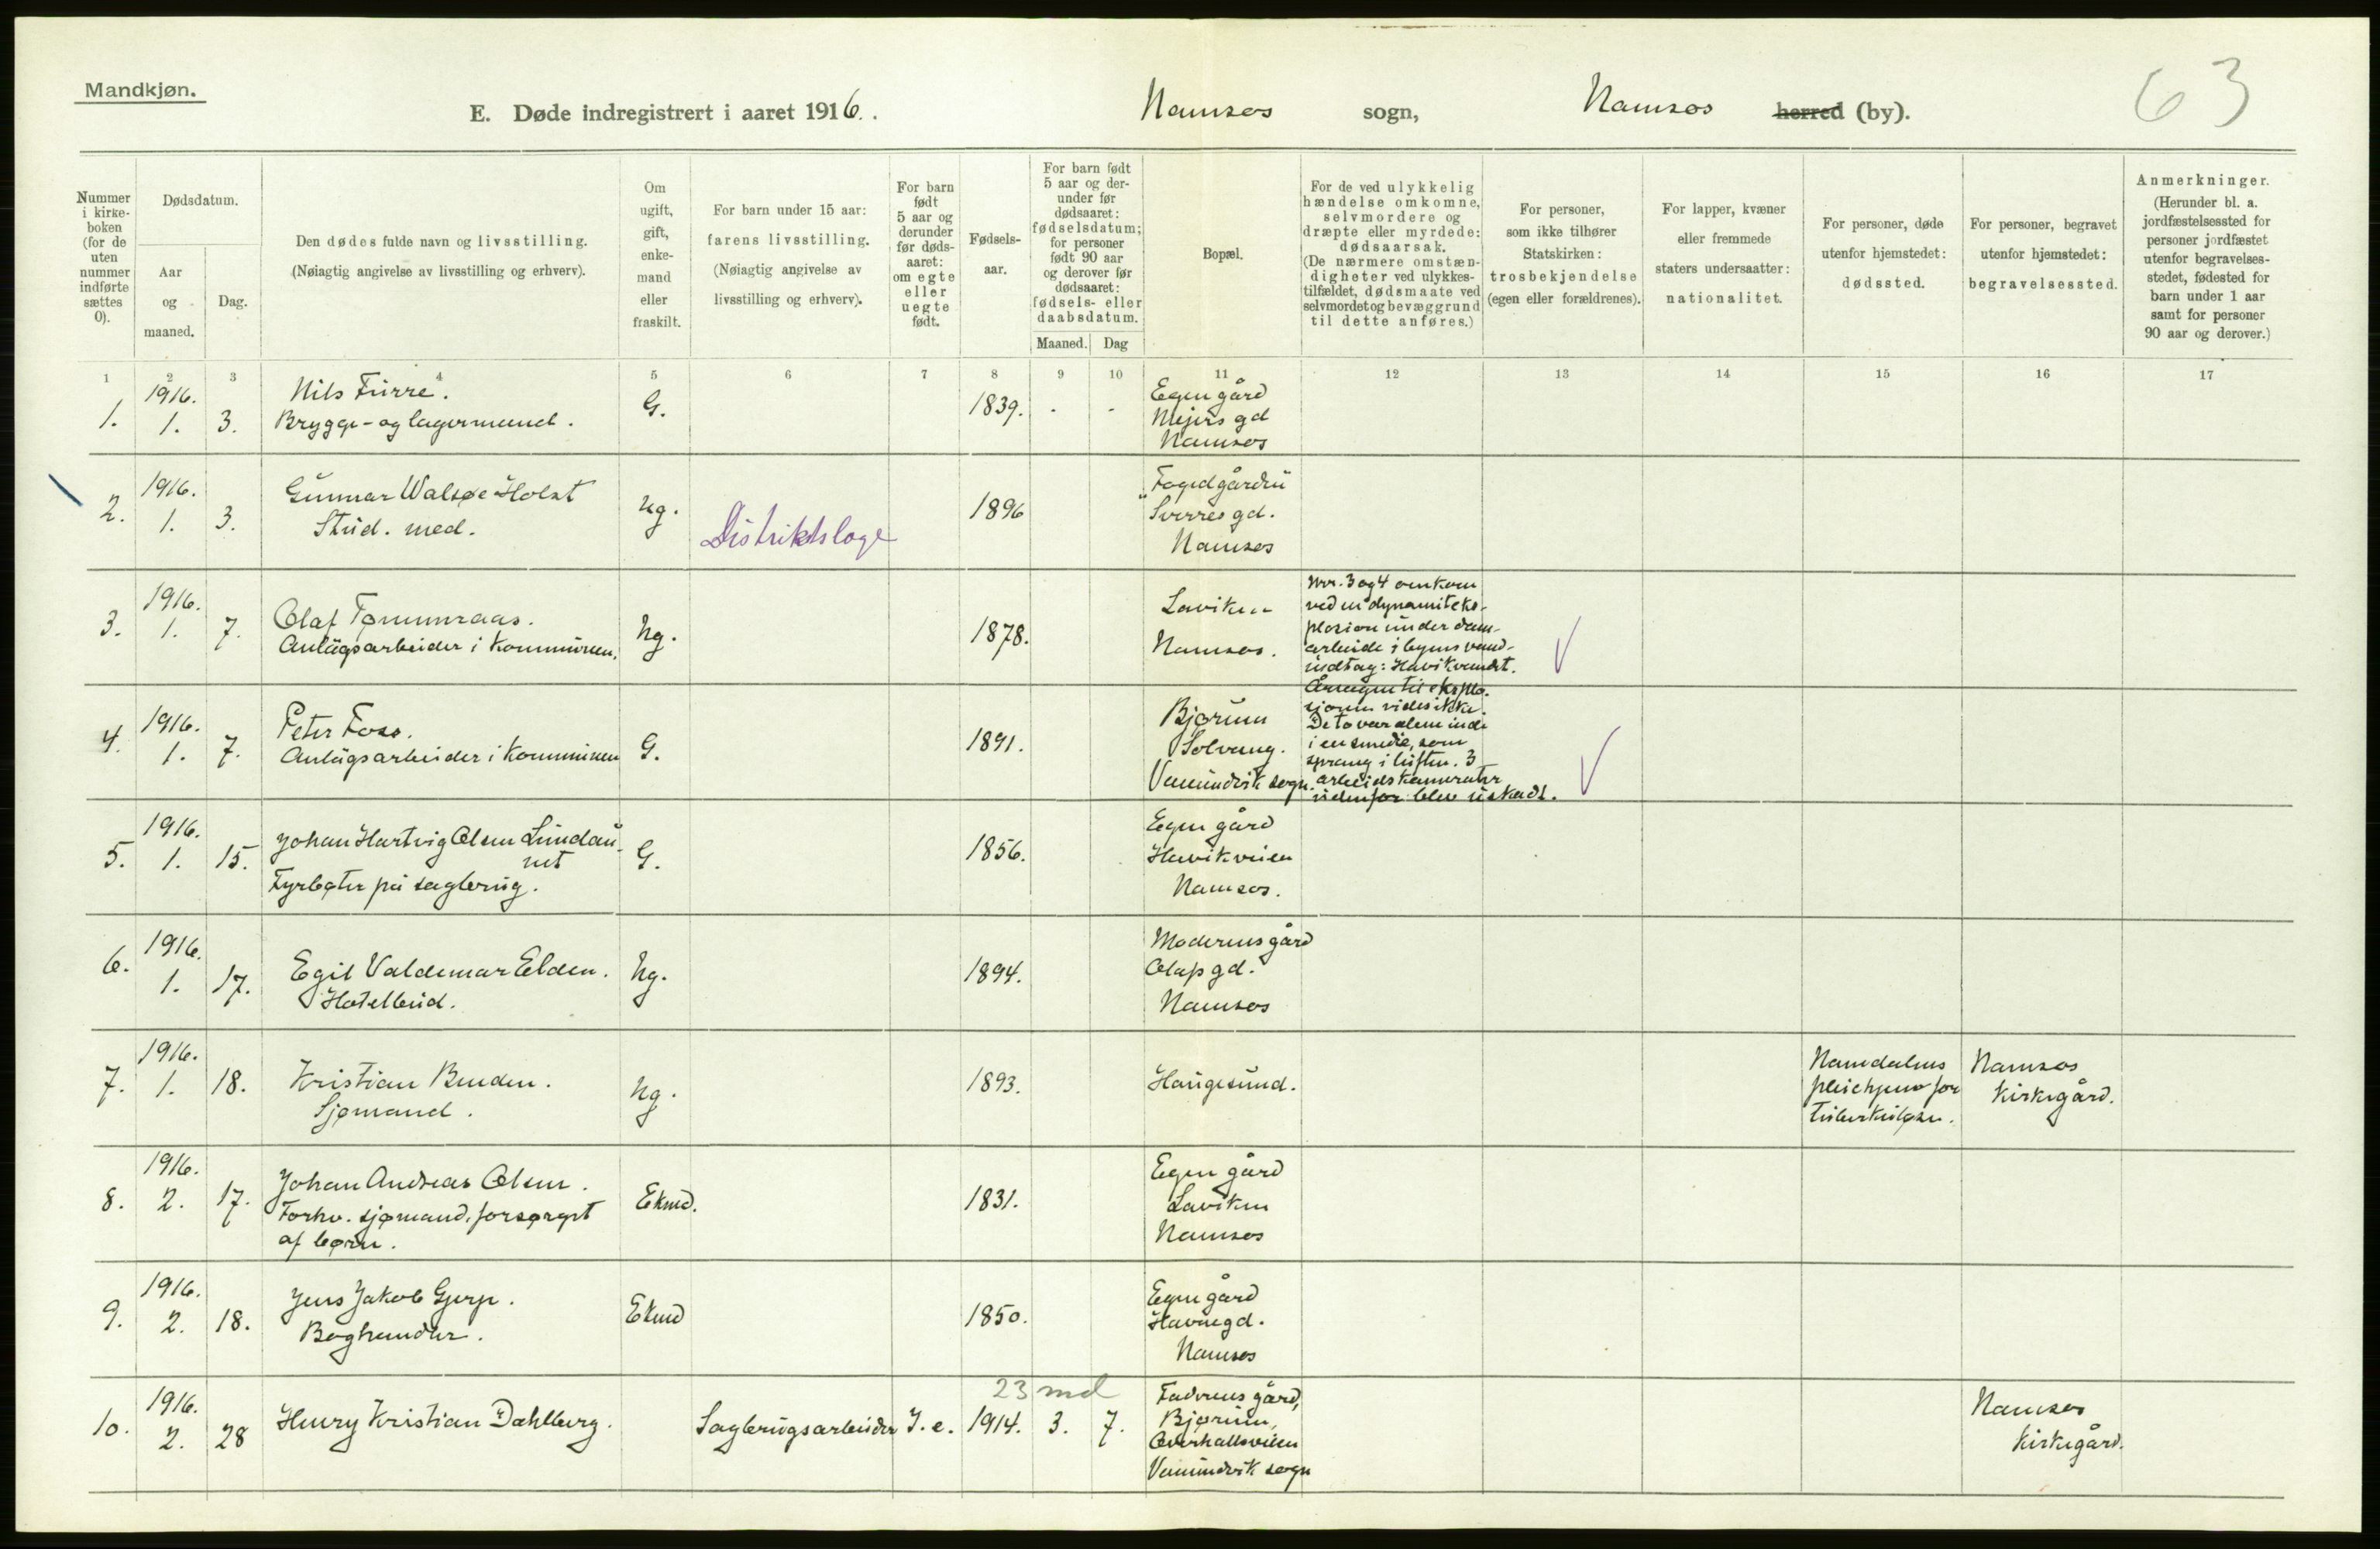 Mandkjøn.
E. Døde indregistrert i aaret 1916. . Namsos sogn, Namsos herred (by). 63
Nummer i kirkeboken (for de uten nummer indførte sættes 0).
Dødsdatum.
Aar og maaned.
Dag.
Den dødes fulde navn og livsstilling.
(Nøiagtig angivelse av livsstilling og erhverv).
Om ugift, gift, enkemand eller fraskilt.
For barn under 15 aar: farens livsstilling.
(Nøiagtig angivelse av livsstilling og erhverv).
For barn født 5 aar og derunder før dødsaaret: om egte eller uegte født.
Fødselsaar.
For barn født 5 aar og derunder før dødsaaret: fødselsdatum; for personer født 90 aar og derover før dødsaaret: fødsels- eller daabsdatum.
Maaned. Dag
Bopæl.
For de ved ulykkelig hændelse omkomne, selvmordere og dræpte eller myrdede: dødsaarsak.
(De nærmere omstændigheter ved ulykkestilfældet, dødsmaate ved selvmordet og bevæggrund til dette anføres.)
For personer, som ikke tilhører Statskirken: trosbekjendelse (egen eller forældrenes).
For lapper, kvæner eller fremmede staters undersaatter: nationalitet.
For personer, døde utenfor hjemstedet: dødssted.
For personer, begravet utenfor hjemstedet: begravelsessted.
Anmerkninger.
(Herunder bl. a. jordfæstelsessted for personer jordfæstet utenfor begravelsesstedet, fødested for barn under 1 aar samt for personer 90 aar og derover.)
1 2 3 4 5 6 7 8 9 10 11 12 13 14 15 16 17
1. 1916. 1. 3.
Nils Furre.
Brygge- og lagermand.
G. 1839. - -
Egen gård
Mejers gd
Namsos
2. 1916. 1. 3.
Gunnar Walsøe Holst
Stud. med.
Ug. Distriktslæge 1896
"Fogedgården
Sverres gd.
Namsos
3. 1916. 1. 7.
Olaf Tømmeraas.
Anlägsarbeider i kommunen.
Ug. 1878.
Laviken
Namsos.
Nr. 3 og 4 omkom
ved en dynamiteks-
plosion under dam-
arbeide i byens vand-
indtag: Havikvandet.
Årsagen til eksplo-
sjonen vides ikke.
De to var alene inde
i en smedie, som
sprang i luften. 3
arbeidskamerater
udenfor blev uskadt.
4. 1916. 1. 7.
Peter Foss.
Anlägsarbeider i kommunen
G. 1891.
Bjørum
Solvang.
Vemundvik sogn.
5. 1916. 1. 15.
Johan Hartvig Olsen Lindau-
net
Fyrbøter på sagbrug.
G. 1856.
Egen gård
Havikveien
Namsos.
6. 1916. 1. 17.
Egil Valdemar Elden.
Hotelbud.
Ug. 1894.
Moderens gård
Olafs gd.
Namsos
7. 1916. 1. 18.
Kristian Benden.
Sjømand.
Ug. 1893.
Haugesund.
Namdalens
pleiehjem for
tuberkuløse.
Namsos
kirkegård.
8. 1916. 2. 17.
Johan Andreas Olsen.
Forhv. sjømand, forsørget
af børn.
Ekmd. 1831.
Egen gård
Laviken
Namsos
9. 1916. 2. 18.
Jens Jakob Gjerp.
Boghandler.
Ekmd 1850.
Egen gård
Havnegd.
Namsos
10. 1916. 2. 28
Henry Kristian Dahlberg.
Sagbrugsarbeider I. e. 1914. 3. 7.
23 md
Faderens gård,
Bjørum,
Overhallsveien
Vemundvik sogn
Namsos
kirkegård.